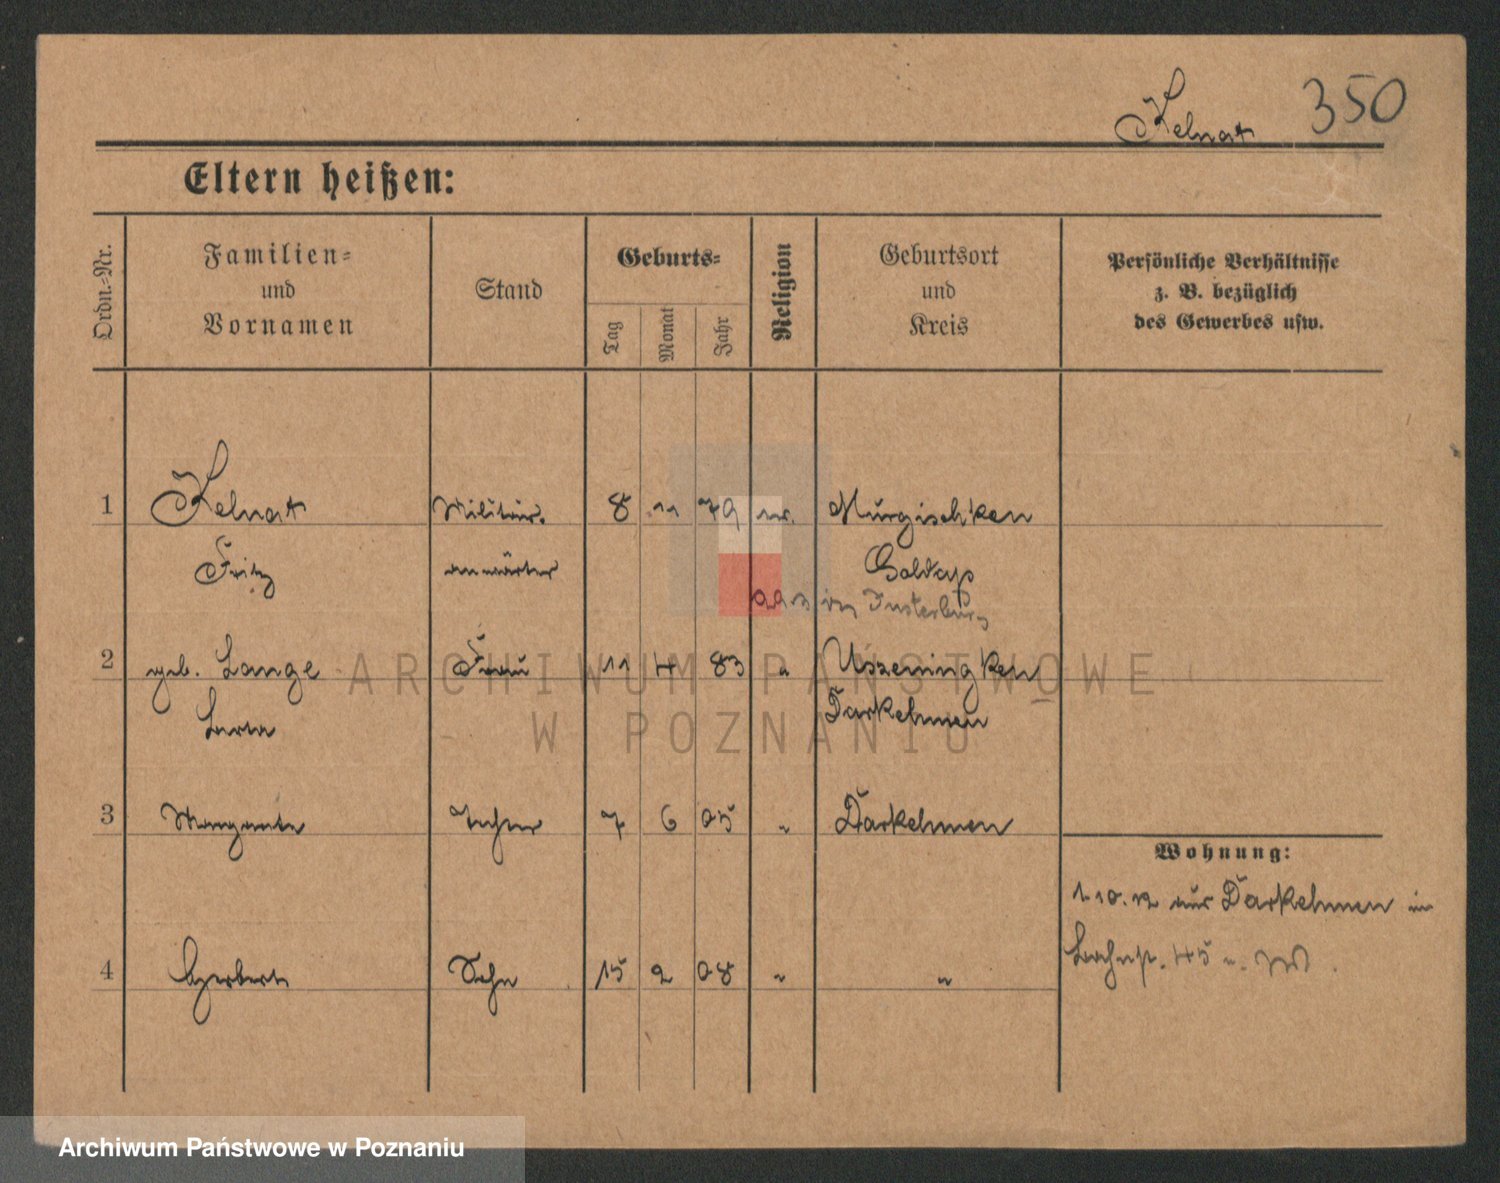 Kelnat 350
Eltern heißen:
Ordn.=Nr.
Familien=
und
Vornamen
Stand
Geburts=
Tag
Monat
Jahr
Religion
Geburtsort
und
Kreis
Persönliche Verhältnisse
z. B. bezüglich
des Gewerbes usw.
1 Kelnat Militär. 8 11 79 Murgischken
Fritz anwärter Goldap
Insterburg
2 geb. Lange Frau 11 4 83 " Uszeningken
Darkehmen
3 Margarete Tochter 7 6 05 " Darkehmen
Wohnung:
1.10.12 aus Darkehmen in
4 Herbert Sohn 15 2 08 " "
45
ARCHIWUM PAŃSTWOWE
W POZNANIU
Archiwum Państwowe w Poznaniu